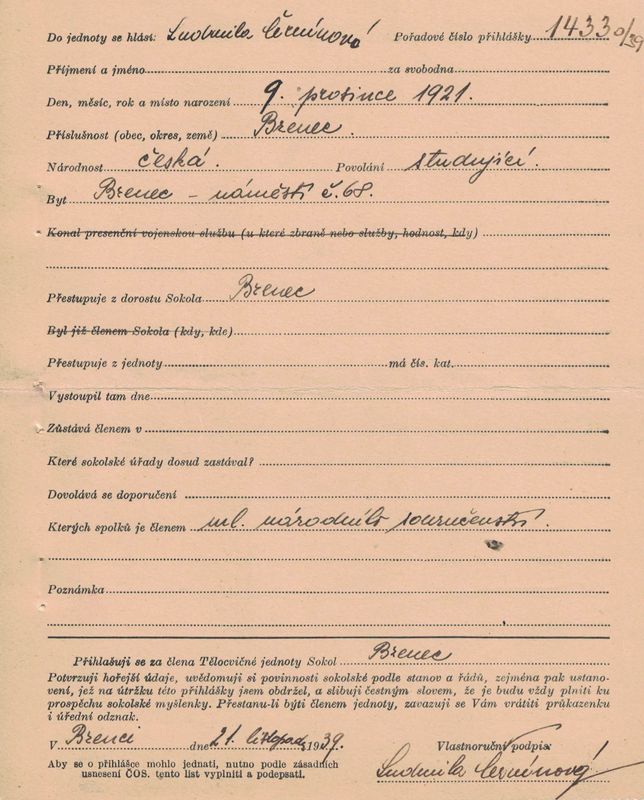 Do jednoty se hlásí: Ludmila Čermínová Pořadové číslo přihlášky 14330/39
Příjmení a jméno za svobodna
Den, měsíc, rok a místo narození 9. prosince 1921.
Příslušnost (obec, okres, země) Březnec.
Národnost česká. Povolání studující.
Byt Březnec – náměstí č. 68.
Konal presenční vojenskou službu (u které zbraně nebo služby, hodnost, kdy)
Přestupuje z dorostu Sokola Březnec
Byl již členem Sokola (kdy, kde)
Přestupuje z jednoty má čís. kat.
Vystoupil tam dne
Zůstává členem v
Které sokolské úřady dosud zastával?
Dovolává se doporučení
Kterých spolků je členem ml. národního souručenství.
Poznámka
Přihlašuji se za člena Tělocvičné jednoty Sokol Březnec
Potvrzuji hořejší údaje, uvědomuji si povinnosti sokolské podle stanov a řádů, zejména pak ustano-
vení, jež na útržku této přihlášky jsem obdržel, a slibuji čestným slovem, že je budu vždy plniti ku
prospěchu sokolské myšlenky. Přestanu-li býti členem jednoty, zavazuji se Vám vrátiti průkazenku
i úřední odznak.
V dne 21. listopadu 1939. Vlastnoruční podpis:
Aby se o přihlášce mohlo jednati, nutno podle zásadních
usnesení ČOS. tento list vyplniti a podepsati. Ludmila Čermínová